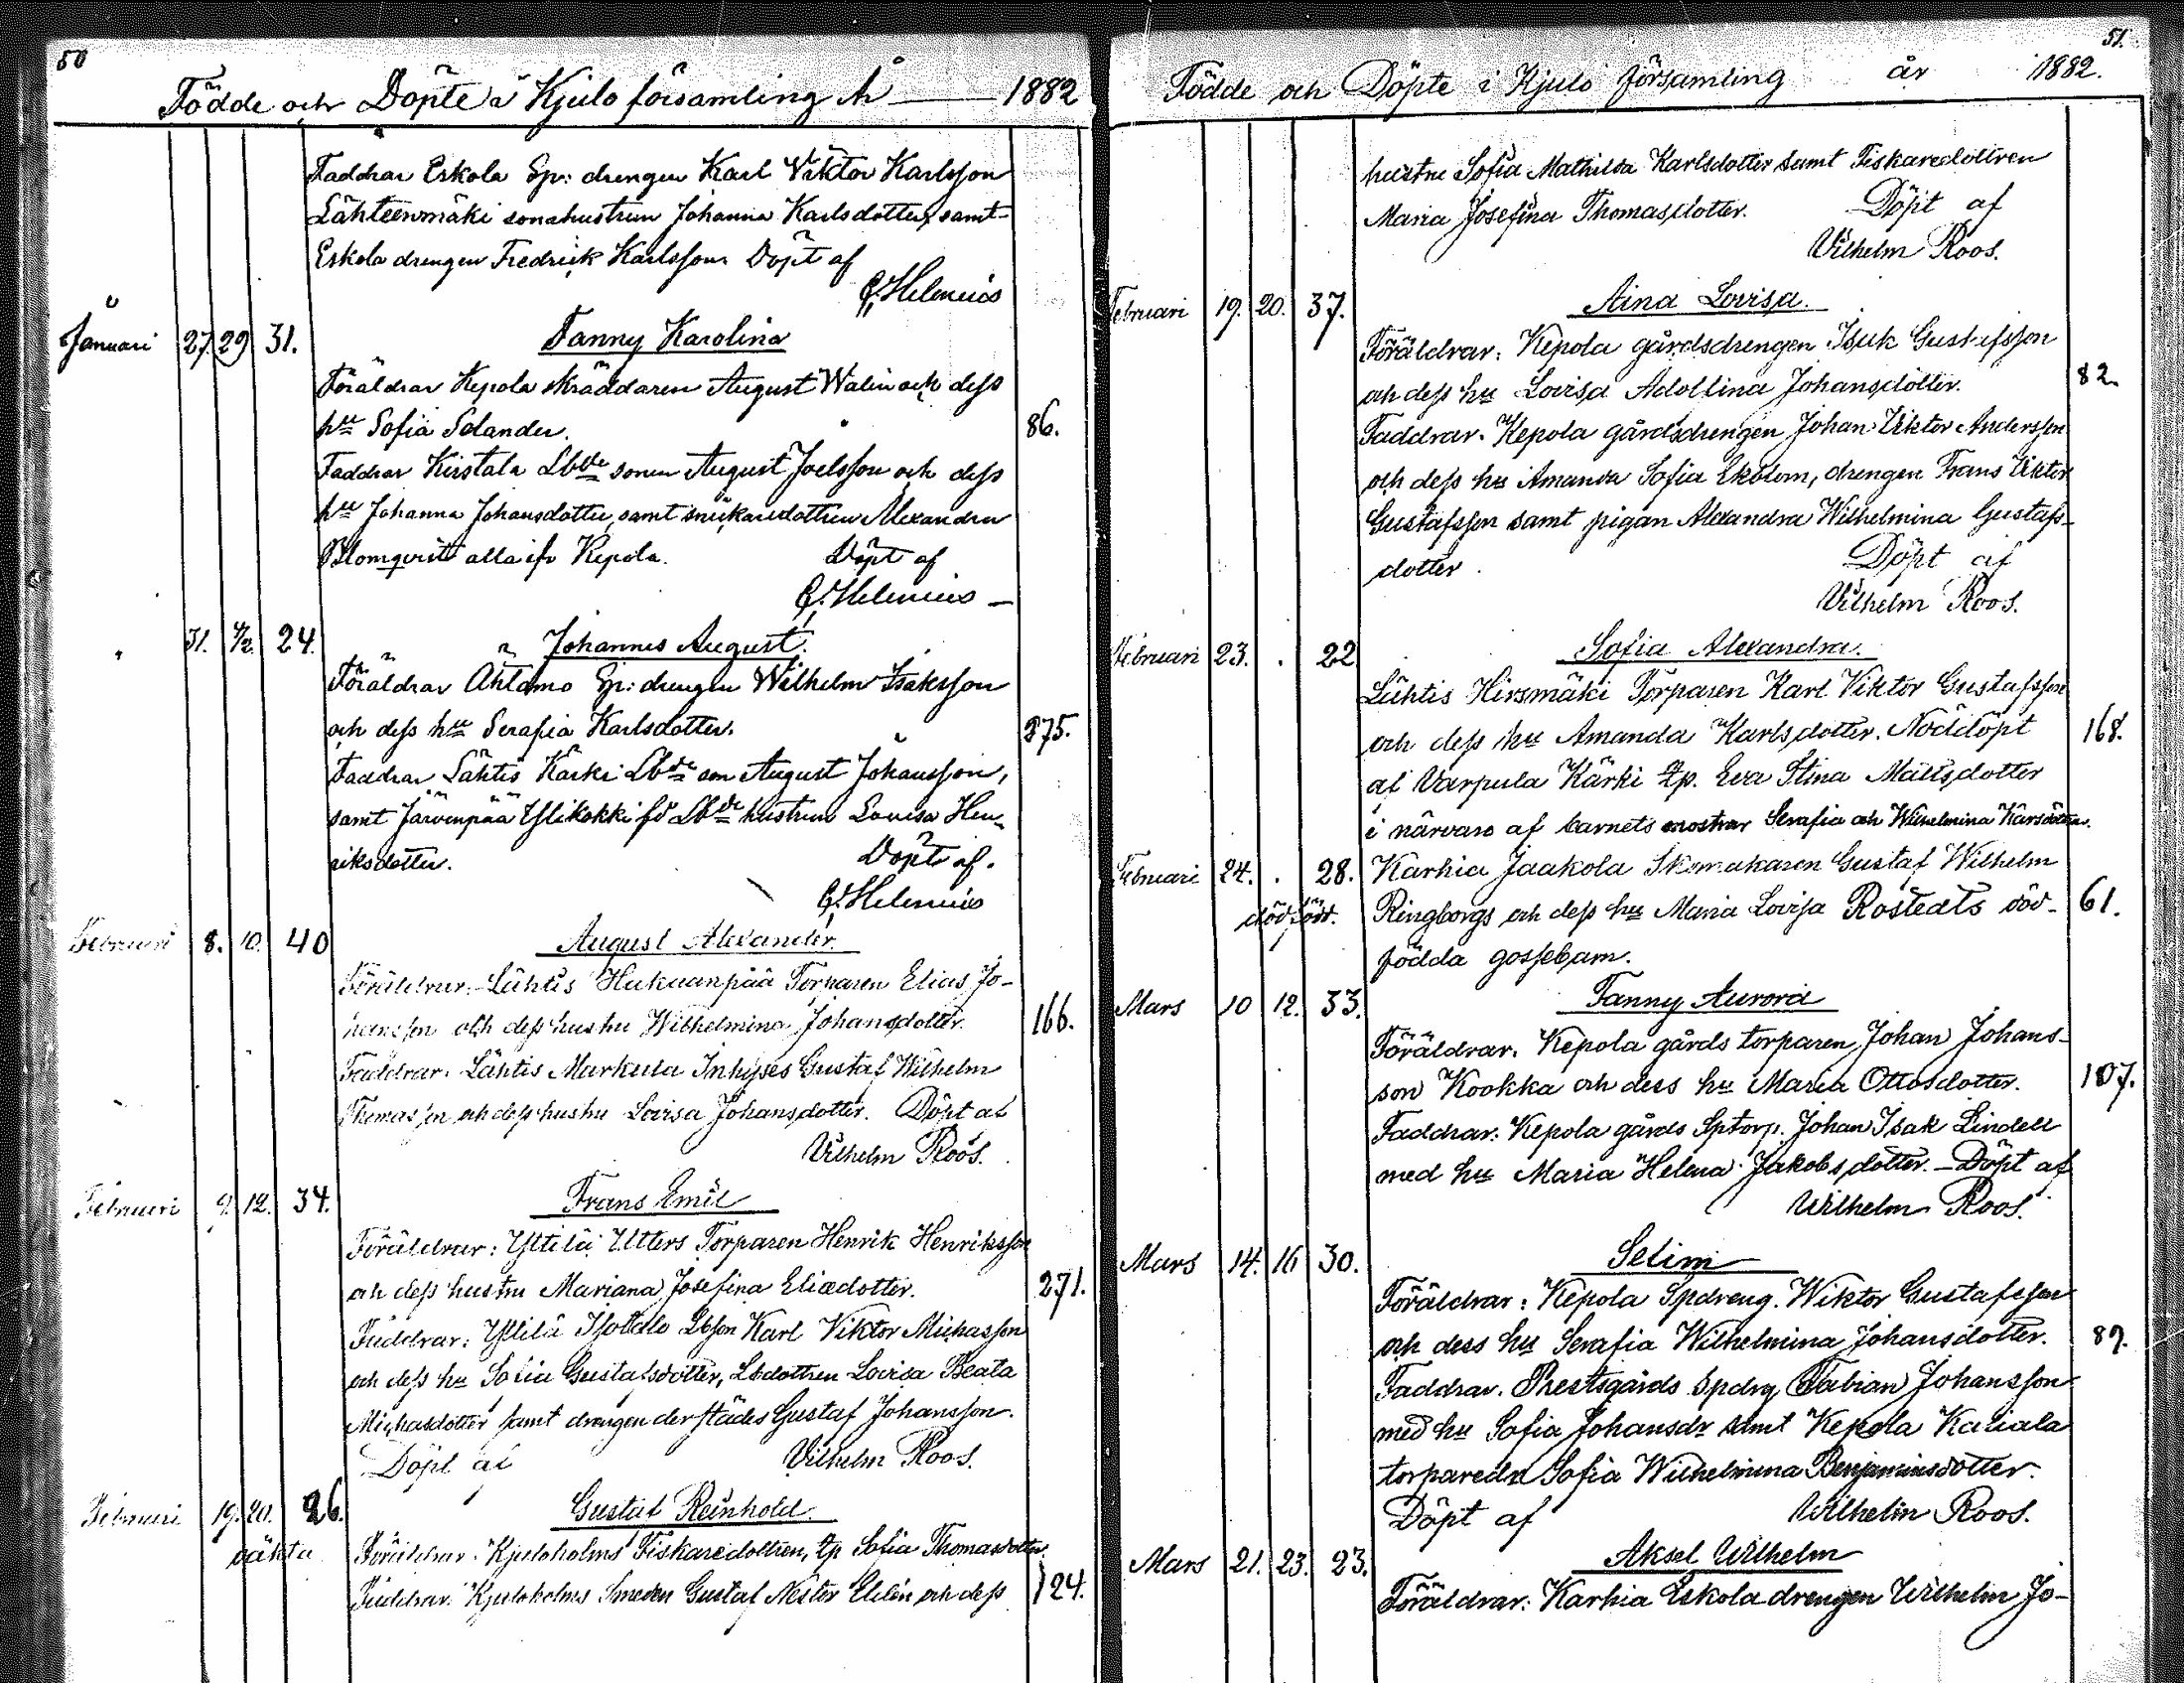 50
Födde och Döpte i Kjulo församling År 1882
Faddrar Eskola Sp: drengen Karl Viktor Karlsson
Lähteenmäki sonahustrun Johanna Karlsdotter, samt
Eskola drengen Fredrick Karlsson Döpt af
Helenius
Januari 27. 29 31. Fanny Karolina
Föräldrar Kepola skräddaren August Walin och dess
hu Sofia Selander. 86.
Faddrar Kirstala Lbde sonen August Joelsson och dess
hu Johanna Johansdotter, samt snickaredottren Alexandra
Blomqvist alla ifr Kepola. Döpt af
Helenius
" 31. 4/2. 24. Johannes August.
Föräldrar Ahtamo Sp: drengen Wilhelm Isaksson
och dess hu Serafia Karlsdotter. 275.
Faddrar Lähtis Kärki Lbde son August Johansson,
samt Järvenpää Ylikokki fd Lbde hustrun Lovisa Hen-
riksdotter. Döpt af.
Helenius
Februari 8. 10. 40 August Alexander.
Föräldrar: Lähtis Hukuanpää Torparen Elias Jo-
hansson och dess hustru Wilhelmina Johansdotter. 166.
Faddrar: Lähtis Markula Inhyses Gustaf Wilhelm
Thomasson och dess hustru Lovisa Johansdotter. Döpt af
Vilhelm Roos.
Februari 9. 12. 34. Frans Emil
Föräldrar: Yttilä Utters Torparen Henrik Henriksson
och dess hustru Mariana Josefina Eliædotter. 271.
Faddrar: Yttilä Isotalo Lbson Karl Viktor Michasson
och dess hu Sofia Gustafsdotter, Lbdottren Lovisa Beata
Michasdotter samt drengen derstädes Gustaf Johansson.
Döpt af Vilhelm Roos.
Februari 19. 20. 26. Gustaf Reinhold.
oäkta Föräldrar: Kjuloholms Fiskaredottren, tp Sofia Thomasdotter.
Faddrar: Kjuloholms Smeden Gustaf Nestor Elelin och dess 124.
51.
Födde och Döpte i Kjulo församling år 1882.
hustru Sofia Mathilda Karlsdotter samt Fiskaredottren
Maria Josefina Thomasdotter. Döpt af
Vilhelm Roos.
Februari 19. 20. 37. Aina Lovisa.
Föräldrar: Kepola gårdsdrengen Isak Gustafsson
och dess hu Lovisa Adolfina Johansdotter. 82.
Faddrar. Kepola gårdsdrengen Johan Viktor Andersson
och dess hu Amanda Sofia Ekblom, drengen Frans Viktor
Gustafsson samt pigan Alexandra Wilhelmina Gustafs-
dotter. Döpt af
Vilhelm Roos.
Februari 23. . 22 Sofia Alexandra.
Lähtis Hirsmäki Torparen Karl Viktor Gustafsson
och dess hu Amanda Karlsdotter. Nöddöpt 168.
af Varpula Kärki tp. Eva Stina Mattsdotter
i närvaro af barnets mostrar Serafia och Wilhelmina Karlsdötter.
Februari 24. . 28. Karhia Jaakola Skomakaren Gustaf Wilhelm
dödfödt. Ringborgs och dess hu Maria Lovisa Rostedts död- 61.
födda gossebarn.
Mars 10 12. 33. Fanny Aurora
Föräldrar. Kepola gårds torparen Johan Johans-
son Kookka och dess hu Maria Ottosdotter. 107.
Faddrar: Kepola gårds Sptorp. Johan Isak Lindell
med hu Maria Helena Jakobsdotter. Döpt af
Wilhelm Roos.
Mars 14. 16 30. Selim
Föräldrar: Kepola Spdreng. Wiktor Gustafsson
och dess hu Serafia Wilhelmina Johansdotter. 89.
Faddrar. Prestgårds Spdrg Fabian Johansson
med hu Sofia Johansdr samt Kepola Kaliala
torparedr Sofia Wilhelmina Benjaminsdotter.
Döpt af Wilhelm Roos.
Mars 21. 23. 23. Aksel Wilhelm
Föräldrar: Karhia Eskola drengen Wilhelm Jo-